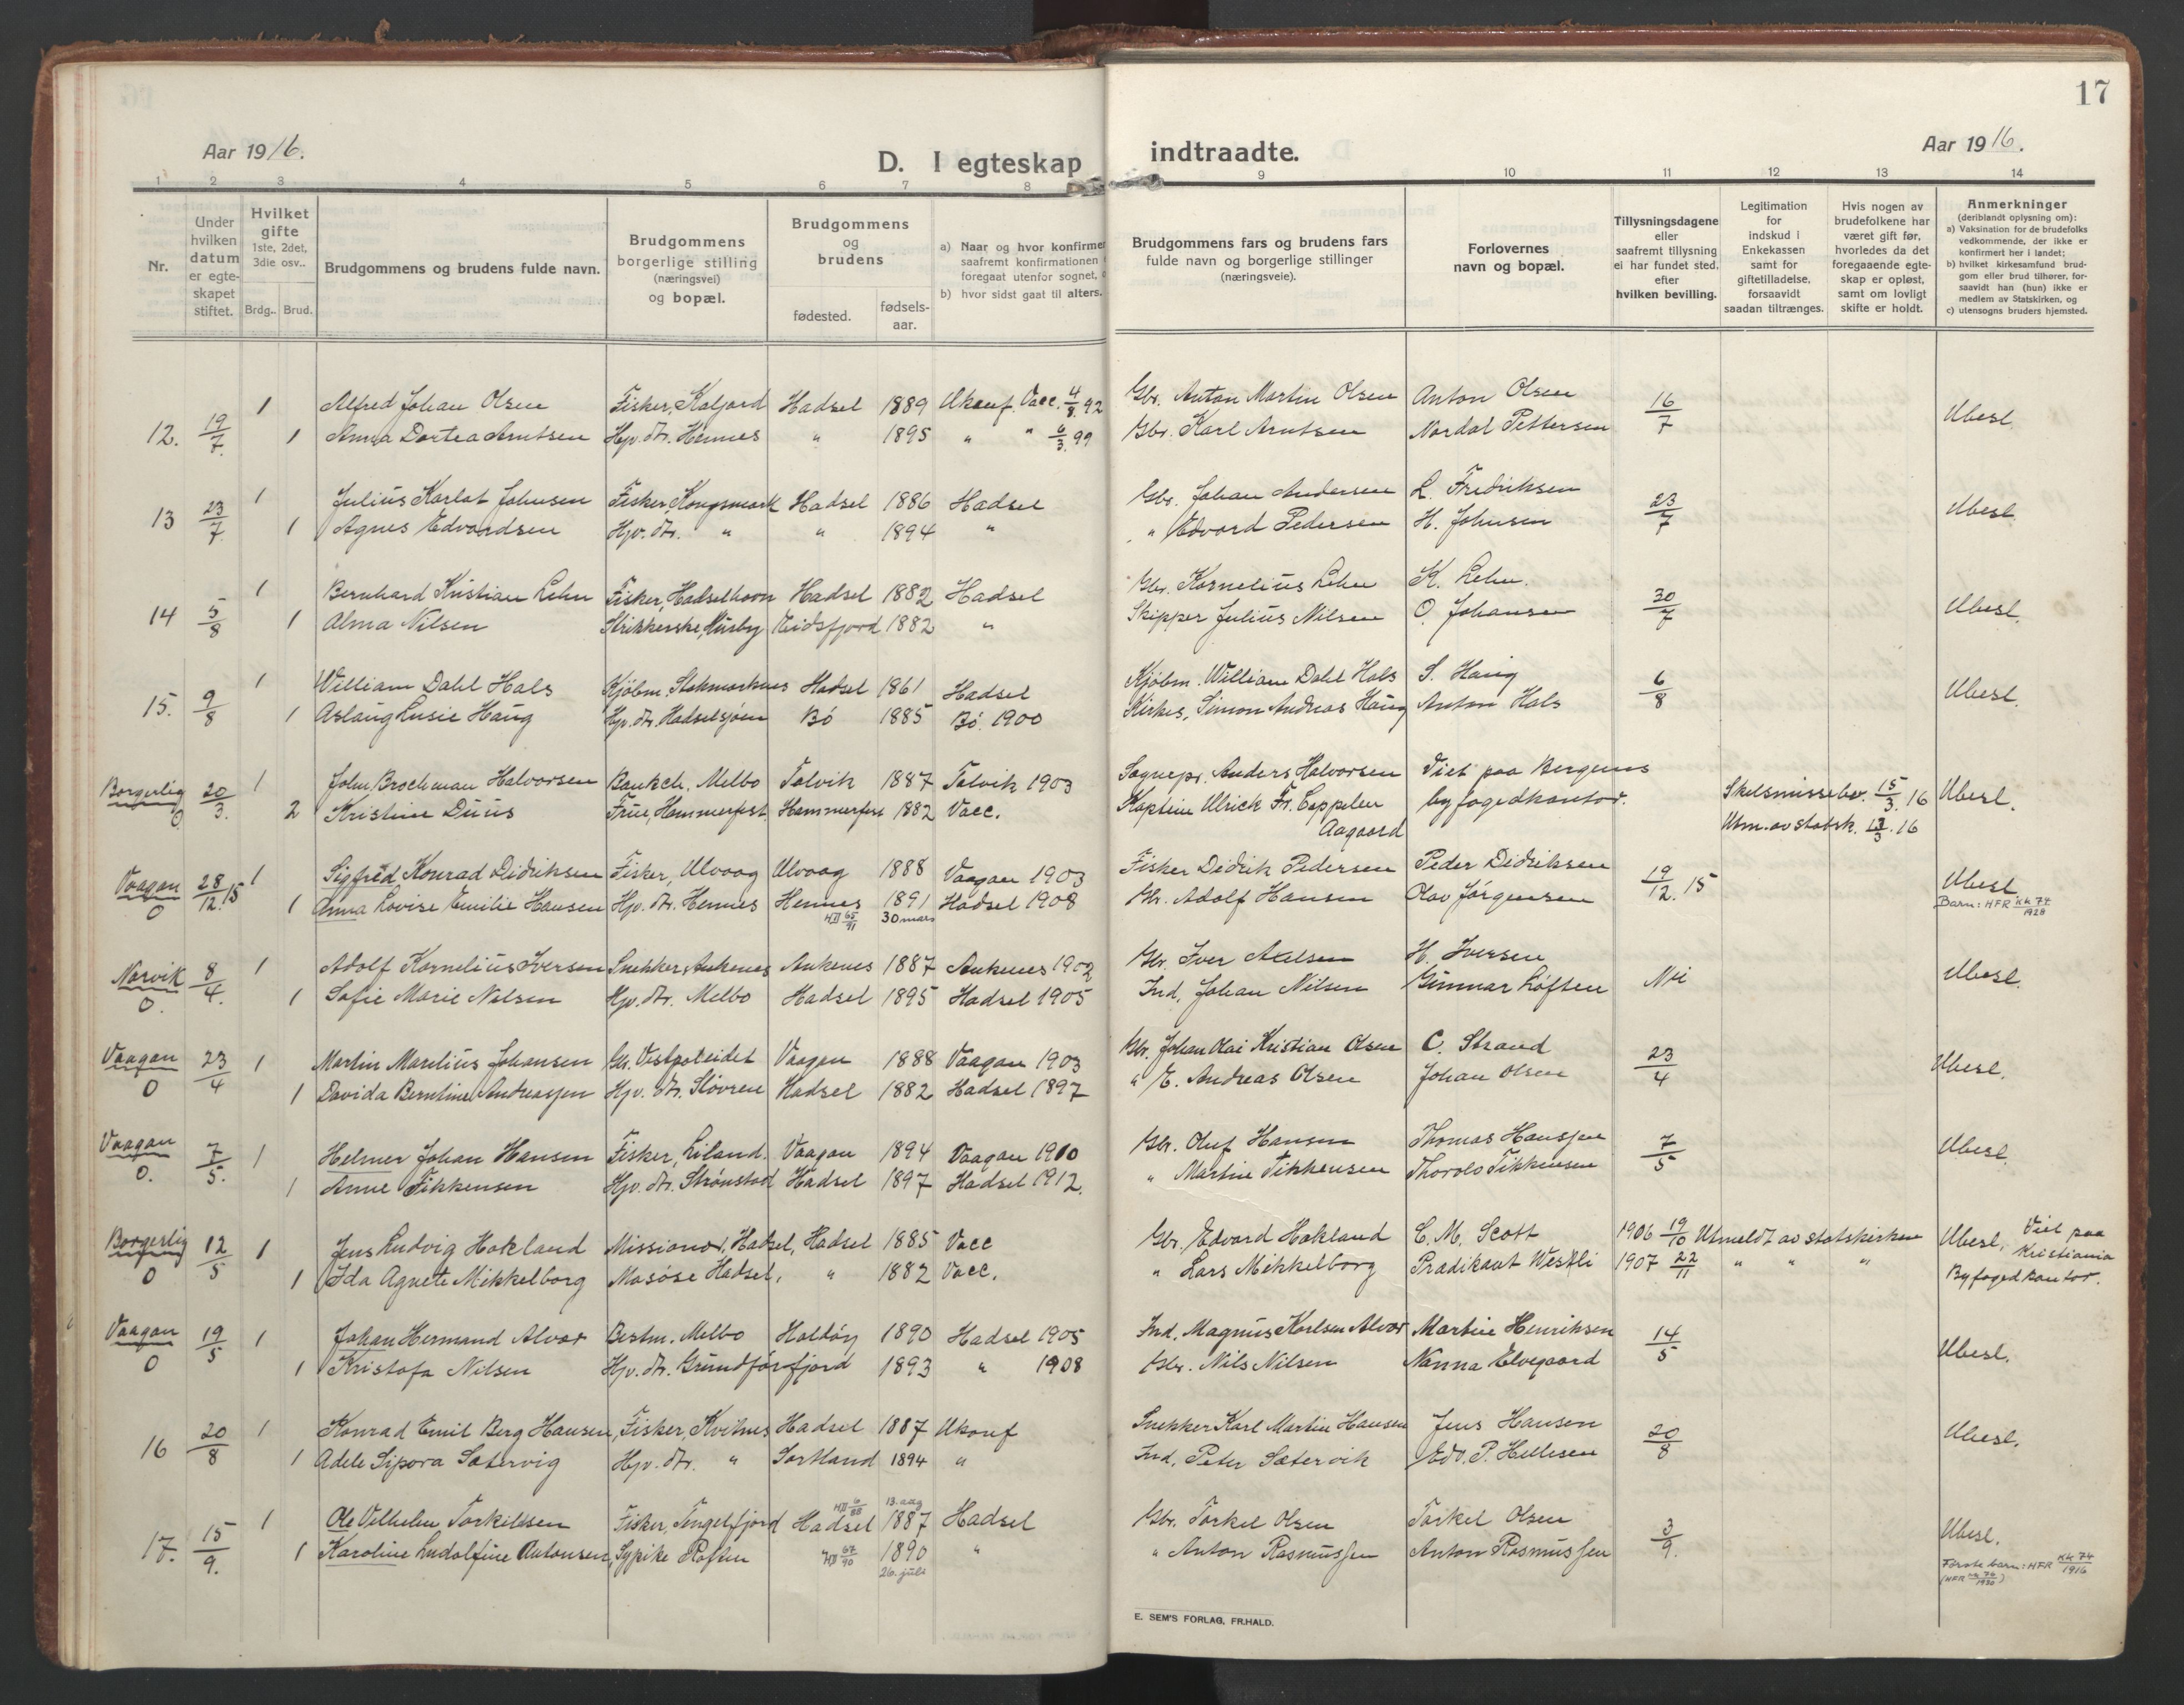 17
Aar 1916.
D. I egteskap indtraadte.
Aar 1916.
1 2 3 4 5 6 7 8 9 10 11 12 13 14
Nr.
Under hvilken datum er egte-skapet stiftet.
Hvilket gifte 1ste, 2det, 3die osv..
Brdg.. Brud.
Brudgommens og brudens fulde navn.
Brudgommens borgerlige stilling (næringsvei) og bopæl.
Brudgommens og brudens
fødested.
fødsels-aar.
a) Naar og hvor konfirme
saafremt konfirmationen
foregaat utenfor sognet,
b) hvor sidst gaat til alters.
Brudgommens fars og brudens fars fulde navn og borgerlige stillinger (næringsveie).
Forlovernes navn og bopæl.
Tillysningsdagene eller saafremt tillysning ei har fundet sted, efter hvilken bevilling.
Legitimation for indskud i Enkekassen samt for giftetilladelse, forsaavidt saadan tiltrænges.
Hvis nogen av brudefolkene har været gift før, hvorledes da det foregaaende egte-skap er opløst, samt om lovligt skifte er holdt.
Anmerkninger
(deriblandt oplysning om):
a) Vaksination for de brudefolks vedkommende, der ikke er konfirmert her i landet;
b) hvilket kirkesamfund brud-gom eller brud tilhører, for-saavidt han (hun) ikke er medlem av Statskirken, og
c) utensogns bruders hjemsted.
12. 19/7. 1 Alfred Johan Olsen Fisker, Kaljord Hadsel 1889 Ukonf. Vacc. 4/8. 92 Gbr. Anton Martin Olsen Anton Olsen 16/7 Ubesl.
1 Anna Dortea Arntsen Hjv. dtr. Hennes " 1895 " " 6/3. 99 Gbr. Karl Arntsen Nordal Pettersen
13 23/7. 1 Julius Karlot Johnsen Fisker, Kongsmark Hadsel 1886 Hadsel Gbr. Johan Andersen L. Fredriksen 23/7 Ubesl.
1 Agnes Edvardsen Hjv. dtr. " " 1894 " " Edvard Pedersen H. Johnsen
14 5/8 1 Bernhard Kristian Lehn Fisker, Hadselhavn Hadsel 1882 Hadsel Gbr. Kornelius Lehn K. Lehn. 30/7 Ubesl.
1 Alma Nilsen Strikkerske, Husby Eidsfjord 1882 " Skipper Julius Nilsen O. Johansen
15. 9/8 1 William Dahl Hals Kjøbm. Stokmarknes Hadsel 1861 Hadsel Kjøbm. William Dahl Hals S. Haug 6/8 Ubesl.
1 Aslaug Lusie Haug Hjv. dtr. Hadselsjøen Bö 1885 Bö. 1900 Kirkes. Simon Andreas Haug Anton Hals
Borgerlig 0 20/3. 1 John Brochman Halvorsen Bankch. Melbo Talvik 1887 Talvik 1903 Sognepr. Anders Halvorsen Viet paa Bergens Skilsmissebev. 15/3. 16 Ubesl.
2 Kristine Duus Frue, Hammerfest. Hammerfest 1882 Vacc. Kaptein Ulrick Fr. Cappelen Aagaard byfogedkontor. Utm. av statsk. 13/3. 16
Vaagan 0 28/12. 15 1 Sigfred Konrad Didriksen Fisker, Ulvaag Ulvaag 1888 Vaagan 1903 Fisker Didrik Pedersen Peder Didriksen 19/12. 15 Ubesl.
1 Anna Lovise Emilie Hansen Hjv. dtr. Hennes Hennes 1891 Hadsel 1908 Gbr. Adolf Hansen Olav Jørgensen Barn: HFR Kk 74/1928
HII 65/91 30 mars
Narvik 0. 8/4. 1 Adolf Kornelius Iversen Snekker, Ankenes Ankenes 1887 Ankenes 1902 Gbr. Iver Axelsen H. Iversen Nei Ubesl.
1 Sofie Marie Nilsen Hjv. dtr. Melbo Hadsel 1895 Hadsel 1905 Ind. Johan Nilsen Gunnar Løften
Vaagan 0 23/4 1 Martin Marelius Johansen Gbr. Vestpoleidet Vaagan 1888 Vaagan 1903 Gbr. Johan Olai Kristian Olsen C. Strand 23/4 Ubesl.
1 Davida Berntine Andreassen Hjv. dtr. Sløvren Hadsel 1882 Hadsel 1897 " E. Andreas Olsen Johan Olsen
Vaagan 0. 7/5. 1 Helmer Johan Hansen Fisker, Liland. Vaagan 1894 Vaagan 1910 Gbr. Oluf Hansen Thomas Hanssen 7/5 Ubesl.
1 Anne Fikkensen Hjv. dtr. Strønstad Hadsel 1897 Hadsel 1912. " Martin Fikkensen Thorolv Fikkensen
Borgerlig 0 12/5 1 Jens Ludvig Hokland Missionær, Hadsel, Hadsel 1885 Vacc Gbr. Edvard Hokland C. M. Scott 1906 19/10 Utmeldt av statskirken Ubesl. Viet paa Kristiania Byfogedkontor.
1 Ida Agnete Mikkelborg Masøse Hadsel, " 1882 Vacc. " Lars Mikkelborg Prædikant Westli 1907 22/11 " " "
Vaagan 0 19/5 1 Johan Hermand Alvær Bestm. Melbo Holdöy 1890 Hadsel 1905 Ind. Magnus Karlsen Alvær Martin Henriksen 14/5 Ubesl.
1 Kristofa Nilsen Hjv. dtr. Grundførfjord 1893 " 1908 Gbr. Nils Nilsen Nanna Elvegaard
16 20/8 1 Konrad Emil Berg Hansen, Fisker, Kvitnes Hadsel 1887 Ukonf Snekker Karl Martin Hansen Jens Hansen 20/8 Ubesl.
1 Adele Sipora Sætervig Hjv. dtr. " Sortland 1894 " Ind. Peter Sætervik Edv. P. Hellesen
HII 6/88 13. aug
17. 15/9. 1 Ole Vilhelm Torkildsen Fisker, Tengelfjord Hadsel 1887 Hadsel Gbr. Torkel Olsen Torkel Olsen 3/9. Ubesl.
1 Karoline Ludolfine Antonsen, Sypike Raften " HII 67/90 1890 " " Anton Rasmussen Anton Rasmussen Første barn: HFR Kk 74/1916
26. juli (HFR Kk 74/1930)
E. SEM'S FORLAG, FR.HALD.